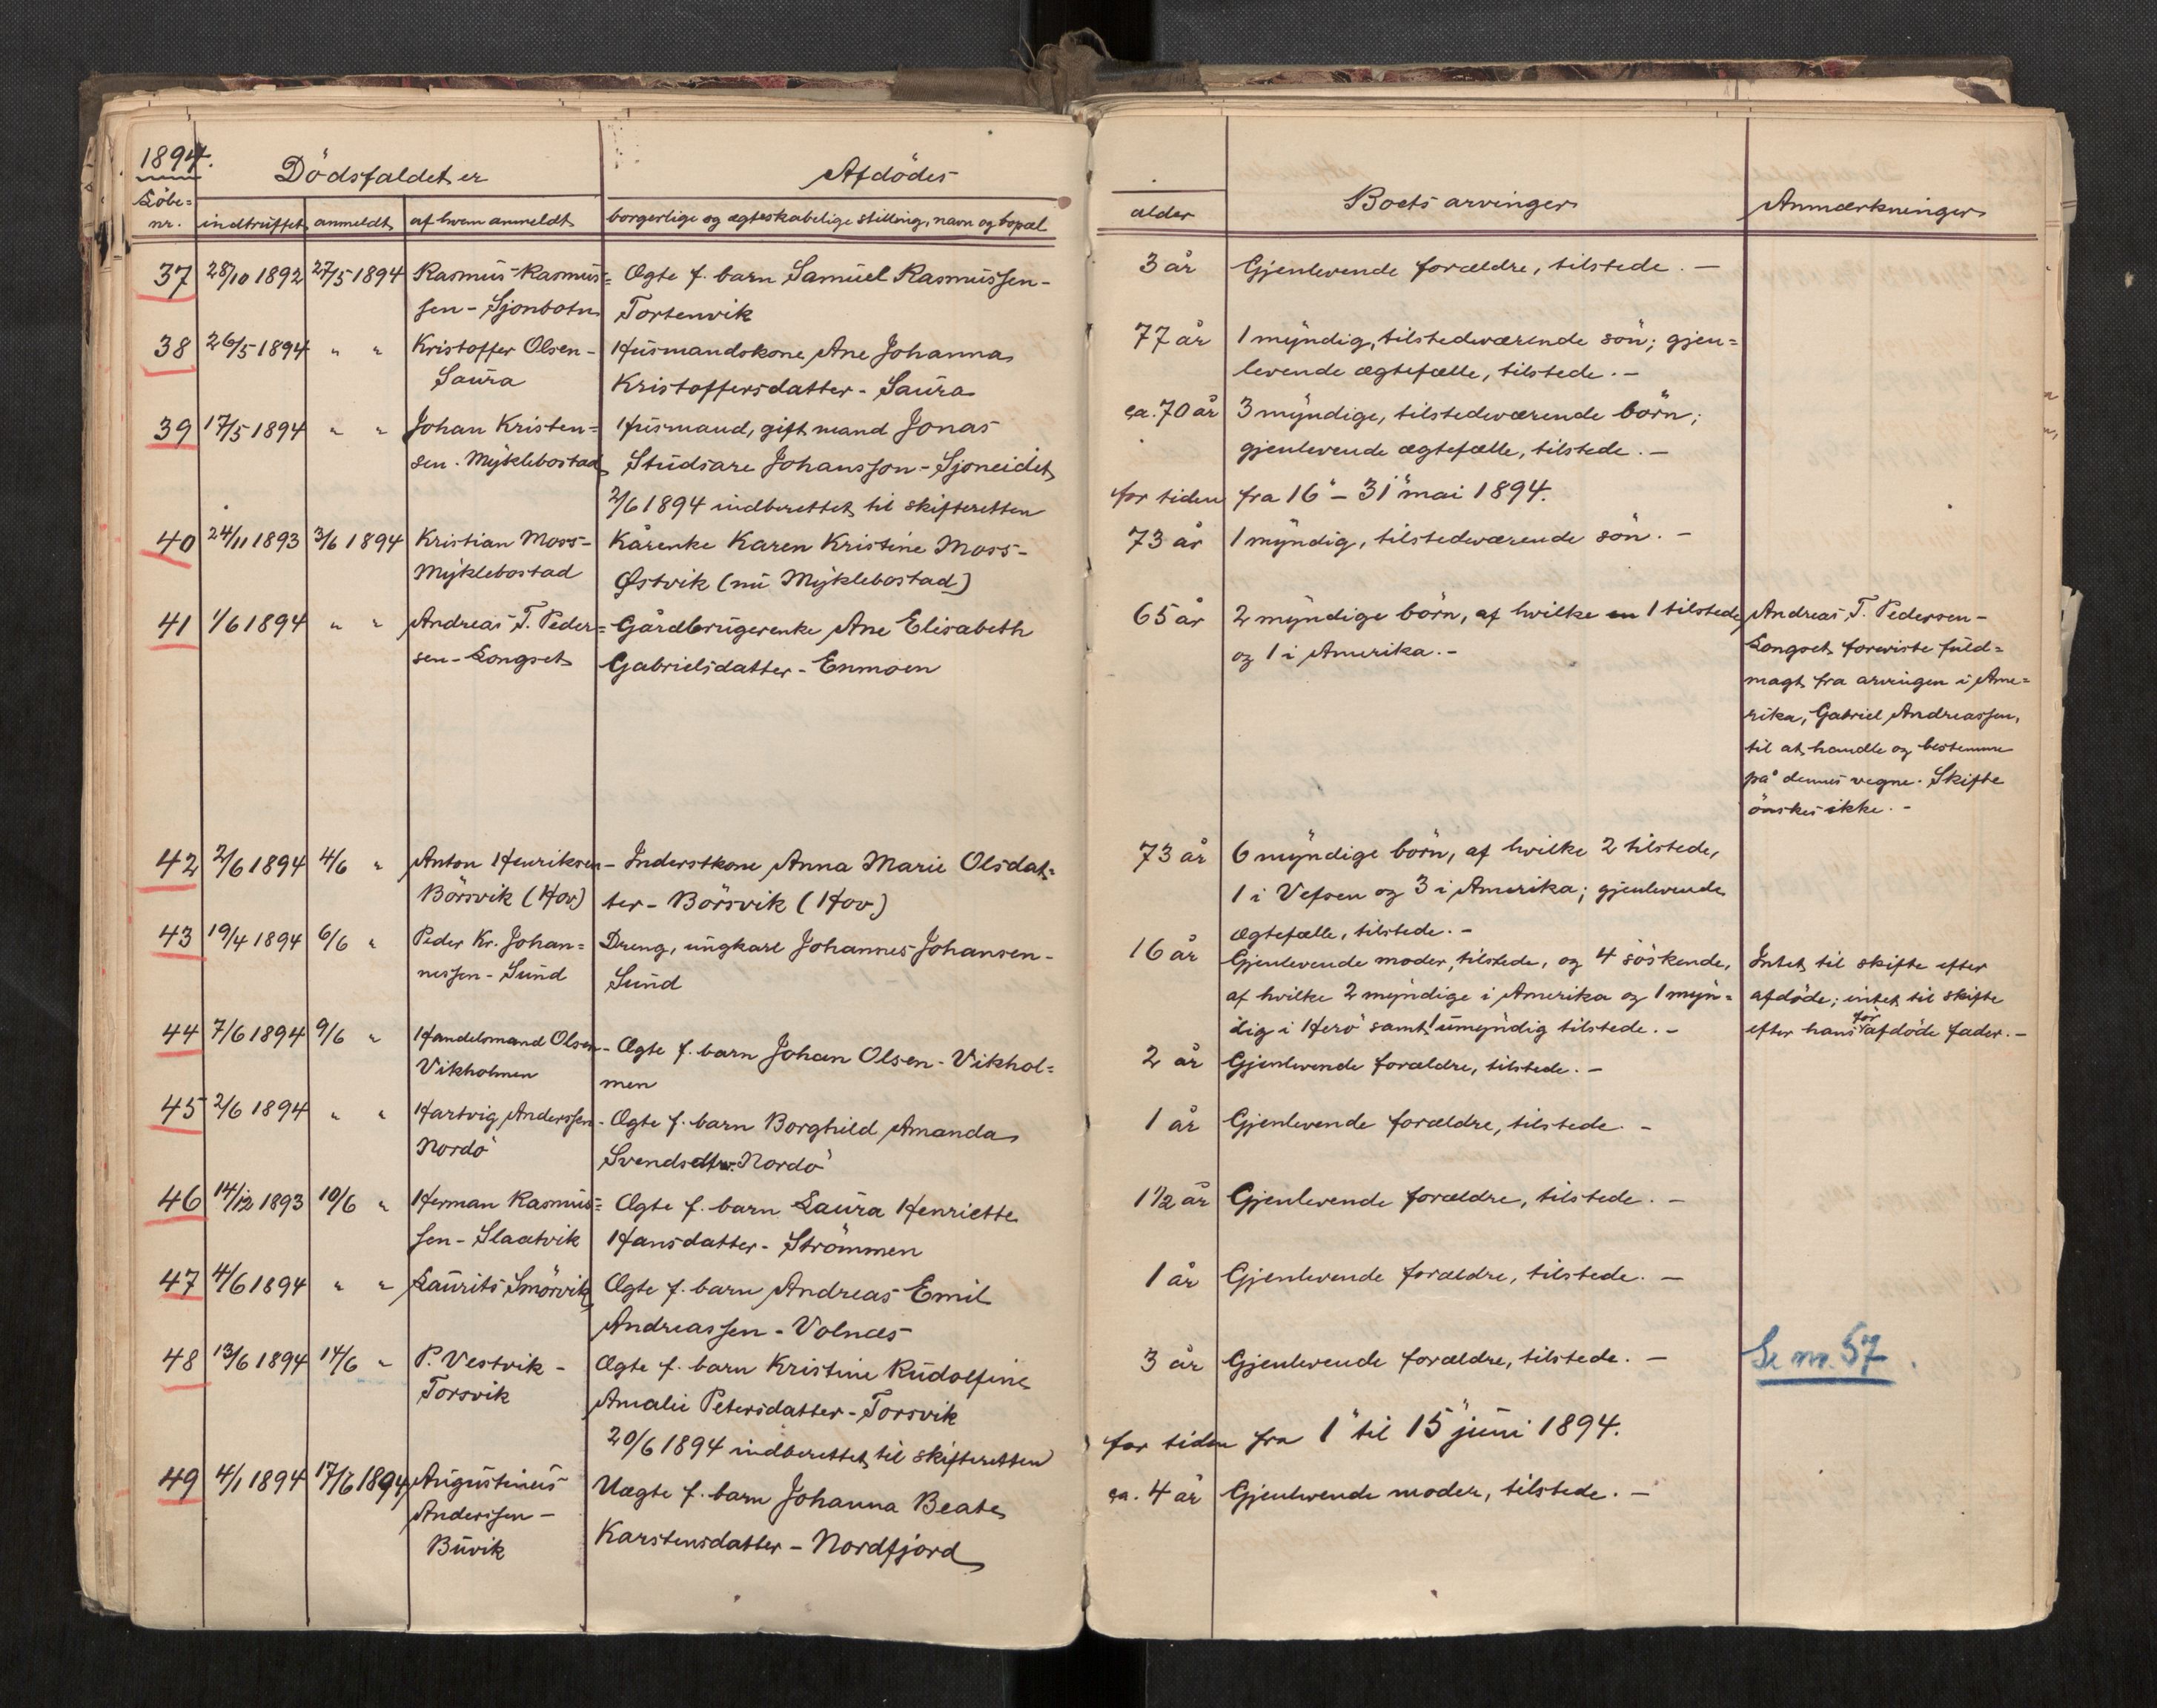 1894.
Dödsfaldet er
Afdödes
Löbe=
nr.
indtruffet
anmeldt
af hvem anmeldt
borgerlige og ægteskabelige stilling, navn og bopæl
alder
Boets arvinger
Anmærkninger
37 28/10 1892 27/5 1894 Rasmus Rasmus= Ægte f. barn Samuel Rasmussen - 3 år Gjenlevende forældre, tilstede. -
sen - Sjonbotn Tortenvik
38 26/5 1894 " " Kristoffer Olsen - Husmandskone Ane Johanna 77 år 1 myndig, tilstedeværende sön; gjen=
Saura Kristoffersdatter - Saura levende ægtefælle, tilstede. -
39 17/5 1894 " " Johan Kristen= Husmand, gift mand Jonas ca. 70 år 3 myndige, tilstedeværende börn;
sen - Myklebostad Studsare Johansson - Sjoneidet gjenlevende ægtefælle, tilstede. -
2/6 1894 indberettet til skifteretten for tiden fra 16" - 31" mai 1894.
40 24/11 1893 3/6 1894 Kristian Moss - Kårenke Karen Kristine Moss - 73 år 1 myndig, tilstedeværende sön. -
Myklebostad Østvik (nu Myklebostad)
41 1/6 1894 " " Andreas T. Peder= Gårdbrugerenke Ane Elisabeth 65 år 2 myndige börn, af hvilke en 1 tilstede Andreas T. Pedersen -
sen - Longset Gabrielsdatter - Enmoen og 1 i Amerika. - Longset foreviste fuld=
magt fra arvingen i Ame=
rika, Gabriel Andreassen,
til at handle og bestemme
på dennes vegne. Skifte
önskes ikke. -
42 2/6 1894 4/6 " Anton Henriksen - Inderstkone Anna Marie Olsdat= 73 år 6 myndige börn, af hvilke 2 tilstede,
Börsvik (Hov) ter - Börsvik (Hov) 1 i Vefsen og 3 i Amerika; gjenlevende
ægtefælle, tilstede. -
43 19/4 1894 6/6 " Peder Kr. Johan= Dreng, ungkarl Johannes Johansen - 16 år Gjenlevende moder, tilstede, og 4 söskende, Intet til skifte efter
nessen - Sund Sund af hvilke 2 myndige i Amerika og 1 myn= afdöde; intet til skifte
dig i Herö samt 1 umyndig tilstede. - efter hans för afdöde fader. -
44 7/6 1894 9/6 " Handelsmand Olsen - Ægte f. barn Johan Olsen - Vikhol= 2 år Gjenlevende forældre, tilstede. -
Vikholmen men
45 2/6 1894 " " Hartvig Anderssen - Ægte f. barn Borghild Amanda 1 år Gjenlevende forældre, tilstede. -
Nordö Svendsdtr. Nordö
46 14/12 1893 10/6 " Herman Rasmus= Ægte f. barn Laura Henriette 1 1/2 år Gjenlevende forældre, tilstede. -
sen - Slaatvik Hansdatter - Strömmen
47 4/6 1894 " " Laurits Smörvik Ægte f. barn Andreas Emil 1 år Gjenlevende forældre, tilstede. -
Andreassen - Volnæs
48 13/6 1894 14/6 " P. Vestvik - Ægte f. barn Kristine Rudolfine 3 år Gjenlevende forældre, tilstede. - Se nr. 57.
Torsvik Amalie Petersdatter - Torsvik
20/6 1894 indberettet til skifteretten for tiden fra 1" til 15" juni 1894.
49 4/1 1894 17/6 1894 Augustinus Uægte f. barn Johanna Beate ca. 4 år Gjenlevende moder, tilstede. -
Anderssen - Karstensdatter - Nordfjord
Buvik